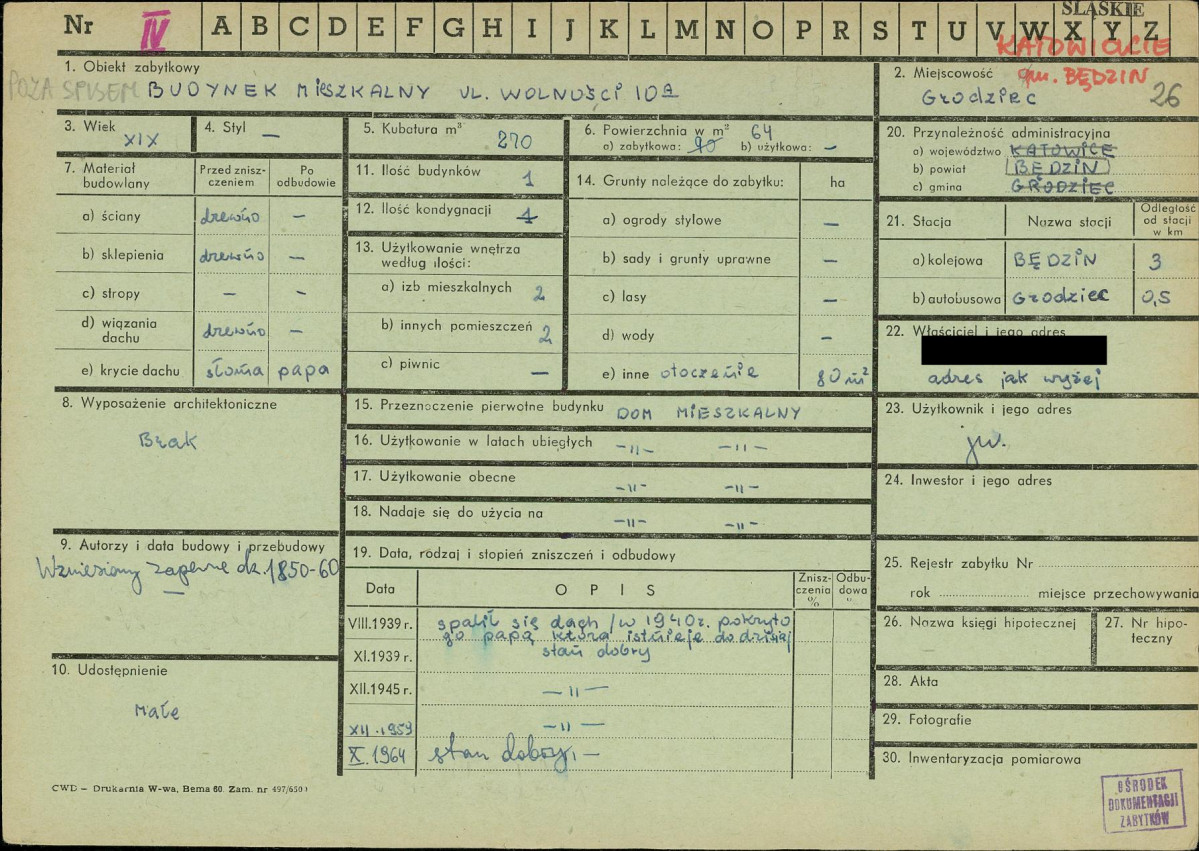 Nr IV A B C D E F G H I J K L M N O P R S T U V W X Y Z
ŚLĄSKIE
KATOWICKIE
1. Obiekt zabytkowy
POZA SPISEM BUDYNEK MIESZKALNY UL. WOLNOŚCI 10A
2. Miejscowość gm. BĘDZIN
Grodziec 26
3. Wiek
XIX
4. Styl —
5. Kubatura m³
270
6. Powierzchnia w m² 64
a) zabytkowa: 90 b) użytkowa: —
7. Materiał budowlany
Przed zniszczeniem
Po odbudowie
a) ściany drewno —
b) sklepienia drewno —
c) stropy — —
d) wiązania dachu drewno —
e) krycie dachu słoma papa
8. Wyposażenie architektoniczne
Brak
9. Autorzy i data budowy i przebudowy
Wzniesiony zapewne ok. 1850-60
—
10. Udostępnienie
Małe
11. Ilość budynków 1
12. Ilość kondygnacji 1
13. Użytkowanie wnętrza
według ilości:
a) izb mieszkalnych 2
b) innych pomieszczeń 2
c) piwnic —
14. Grunty należące do zabytku: ha
a) ogrody stylowe —
b) sady i grunty uprawne —
c) lasy —
d) wody —
e) inne otoczenie 80 m²
15. Przeznaczenie pierwotne budynku DOM MIESZKALNY
16. Użytkowanie w latach ubiegłych —„— —„—
17. Użytkowanie obecne —„— —„—
18. Nadaje się do użycia na —„— —„—
19. Data, rodzaj i stopień zniszczeń i odbudowy
Data OPIS Zniszczenia % Odbudowa %
VIII.1939 r. spalił się dach /w 1940r. pokryto
go papą która istnieje do dzisiaj
XI.1939 r. stan dobry
XII.1945 r. —„—
XII.1959 —„—
X.1964 stan dobry. —
20. Przynależność administracyjna
a) województwo KATOWICE
b) powiat BĘDZIN
c) gmina GRODZIEC
21. Stacja Nazwa stacji Odległość od stacji w km
a) kolejowa BĘDZIN 3
b) autobusowa Grodziec 0,5
22. Właściciel i jego adres
adres jak wyżej
23. Użytkownik i jego adres
jw.
24. Inwestor i jego adres
25. Rejestr zabytku Nr
rok miejsce przechowywania
26. Nazwa księgi hipotecznej
27. Nr hipoteczny
28. Akta
29. Fotografie
30. Inwentaryzacja pomiarowa
CWD – Drukarnia W-wa, Bema 60. Zam. nr 497/650
OŚRODEK
DOKUMENTACJI
ZABYTKÓW